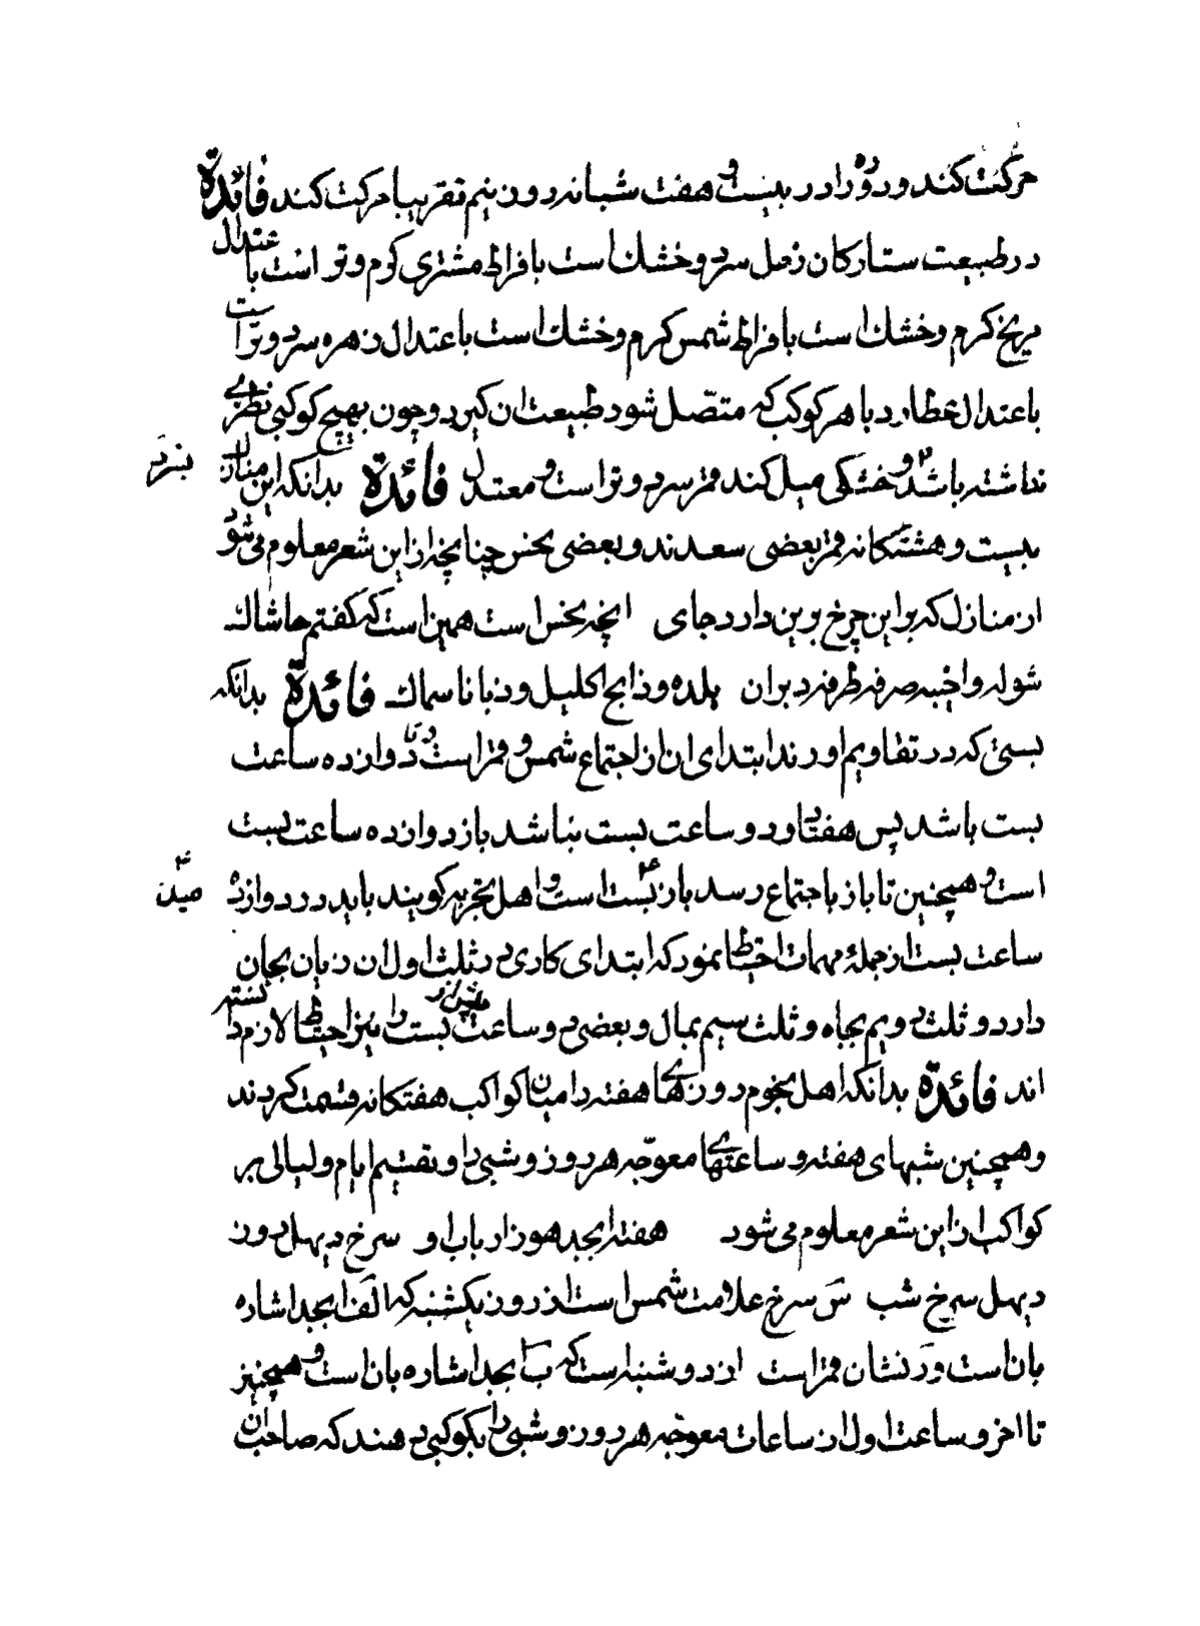 حرکت کند و دوره را در بیست و هفت شبانه روز و نیم تقریبا حرکت کند فائدة
در طبیعت ستارکان زحل سرد و خشك است بافراط مشتری کرم و تر است با عتدال
مریخ کرم و خشك است بافراط شمس کرم و خشك است باعتدال زهره سرد و تر است
باعتدال عطارد با هر کوکب که متصّل شود طبیعت ان کیرد و چون بهیچ کوکبی نظری
نداشته باشد و خشکی میل کند قمر سرد و تر است و معتدل فائدة بدانکه این منازل
بیست و هشتکانه قمر بعضی سعدند و بعضی نحس چنانچه از این شعر معلوم می شود
از منازل که بر این چرخ برین دارد جای انچه نحس است همین است که کفتم حاشاك
شوله و اخبیه صرفه طرفه دبران بلده و ذابح اکلیل و زبانا سماك فائدة بدانکه
بستی که در تقاویم اورند ابتدای ان از اجتماع شمس و قمر است و تا دوازده ساعت
بست باشد پس هفتاد و دو ساعت بست نباشد باز دوازده ساعت بست
است و همچنین تا باز باجتماع رسد باز بست است و اهل تجربه کویند باید در دوازده
ساعت بست از جملهٔ مهمات احتیاط نمود که ابتدای کاری در ثلث اول ان زیان بجان
دارد و ثلث دویم بجاه و ثلث سیم بمال و بعضی دو ساعت پیش از بست را نیز احتیاط لازم دانسته
اند فائدة بدانکه اهل نجوم روزهای هفته را میان کواکب هفتکانه قسمت کردند
و همچنین شبهای هفته و ساعتهای معوجّه هر روز و شبی را و تقسیم ایام و لیالی بر
کواکب از این شعر معلوم می شود هفته ابجد هوز ارباب او سرخ دیهل روز
دیهل سرخ شب سَ سرخ علامت شمس است از روز یکشنبه که الف ابجد اشاره
بان است و رَ نشان قمر است از دوشنبه است که ب ابجد اشاره بان است و همچنین
تا اخر و ساعت اول از ساعات معوجّه هر روز و شبی را بکوکبی دهند که صاحب ان